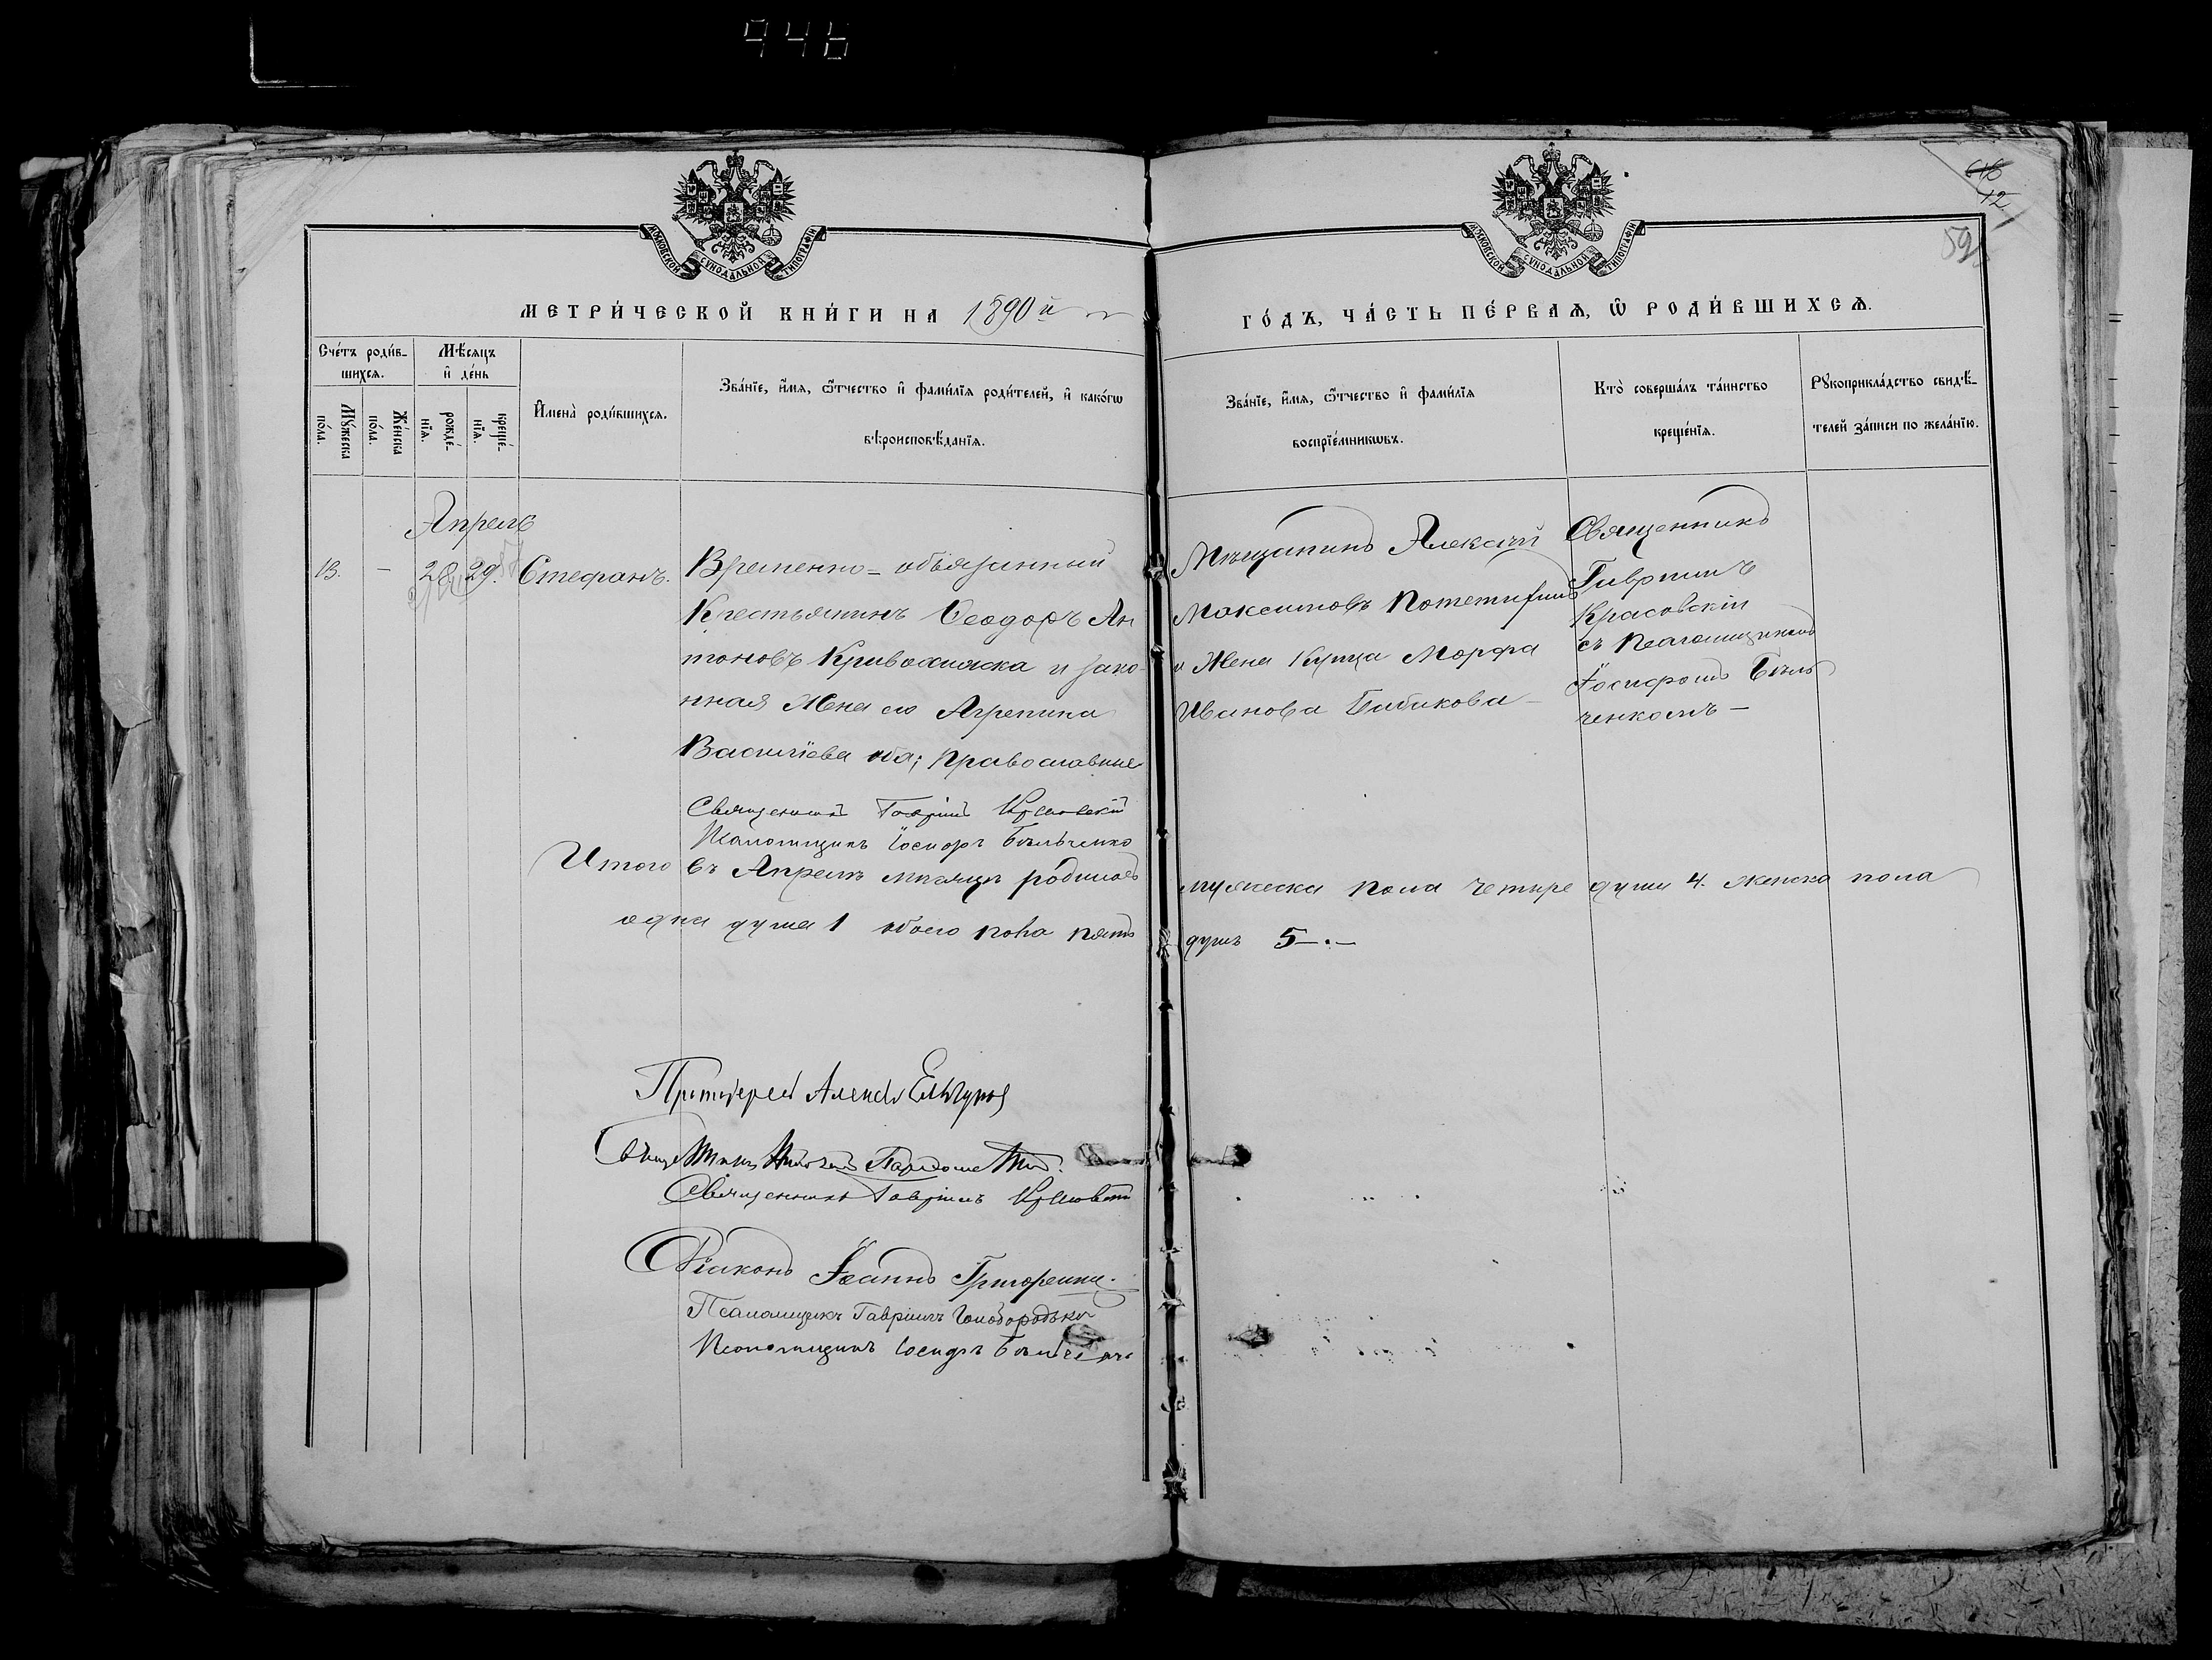 946
616
12
59
МОСКОВСКОЙ СѴНОДАЛЬНОЙ ТИПОГРАФІИ
МОСКОВСКОЙ СѴНОДАЛЬНОЙ ТИПОГРАФІИ
МЕТРИ́ЧЕСКОЙ КНИ́ГИ НА 1890 й
ГО́ДЪ, ЧА́СТЬ ПЕ́РВАѦ, Ѡ҆ РОДИ́ВШИХСѦ.
Сче́тъ роди́в-
шихсѧ.
Мѹ́жеска
по́ла.
Же́нска
по́ла.
Мѣ́сѧцъ
и҆ де́нь
рожде́-
нїѧ.
креще́-
нїѧ.
И҆мена̀ роди́вшихсѧ.
Зва́нїе, и҆́мѧ, ѻ҆́тчество и҆ фами́лїѧ роди́телей, и҆ како́гѡ
вѣроисповѣ́данїѧ.
Зва́нїе, и҆́мѧ, ѻ҆́тчество и҆ фами́лїѧ
воспрїе́мникѡвъ.
Кто̀ соверша́лъ та́инство
креще́нїѧ.
Рѹкоприкла́дство свидѣ́-
телей за́писи по жела́нїю.
Апрель
13. – 28 29. Стефанъ.
Временно-обязанный
Крестьянинъ Ѳеодоръ Ан
тоновъ Кривохижка и зако-
нная жена его Агрепина
Василіева оба; православные
Мѣщанинъ Алексѣй
Максимовъ
и Жена Купца Марфа
Иванова Бабикова –
Священникъ
Гавріилъ
Красовскій
съ Псаломщикомъ
Іосифомъ Бѣль
ченкомъ –
Священникъ Гавріилъ Красовскій
Псаломщикъ Іосифъ Бѣльченко
Итого въ Апрелѣ мѣсяцѣ родилось мужеска пола четыре души 4. женска пола
одна душа 1 обоего пола пять душъ 5–.–
Протоіерей Алексѣй
Священникъ
Священникъ Гавріилъ Красовскій
Діаконъ Іоаннъ Григоренко.
Псаломщикъ Гавріилъ Голобородько
Псаломщикъ Іосифъ Бѣльченко